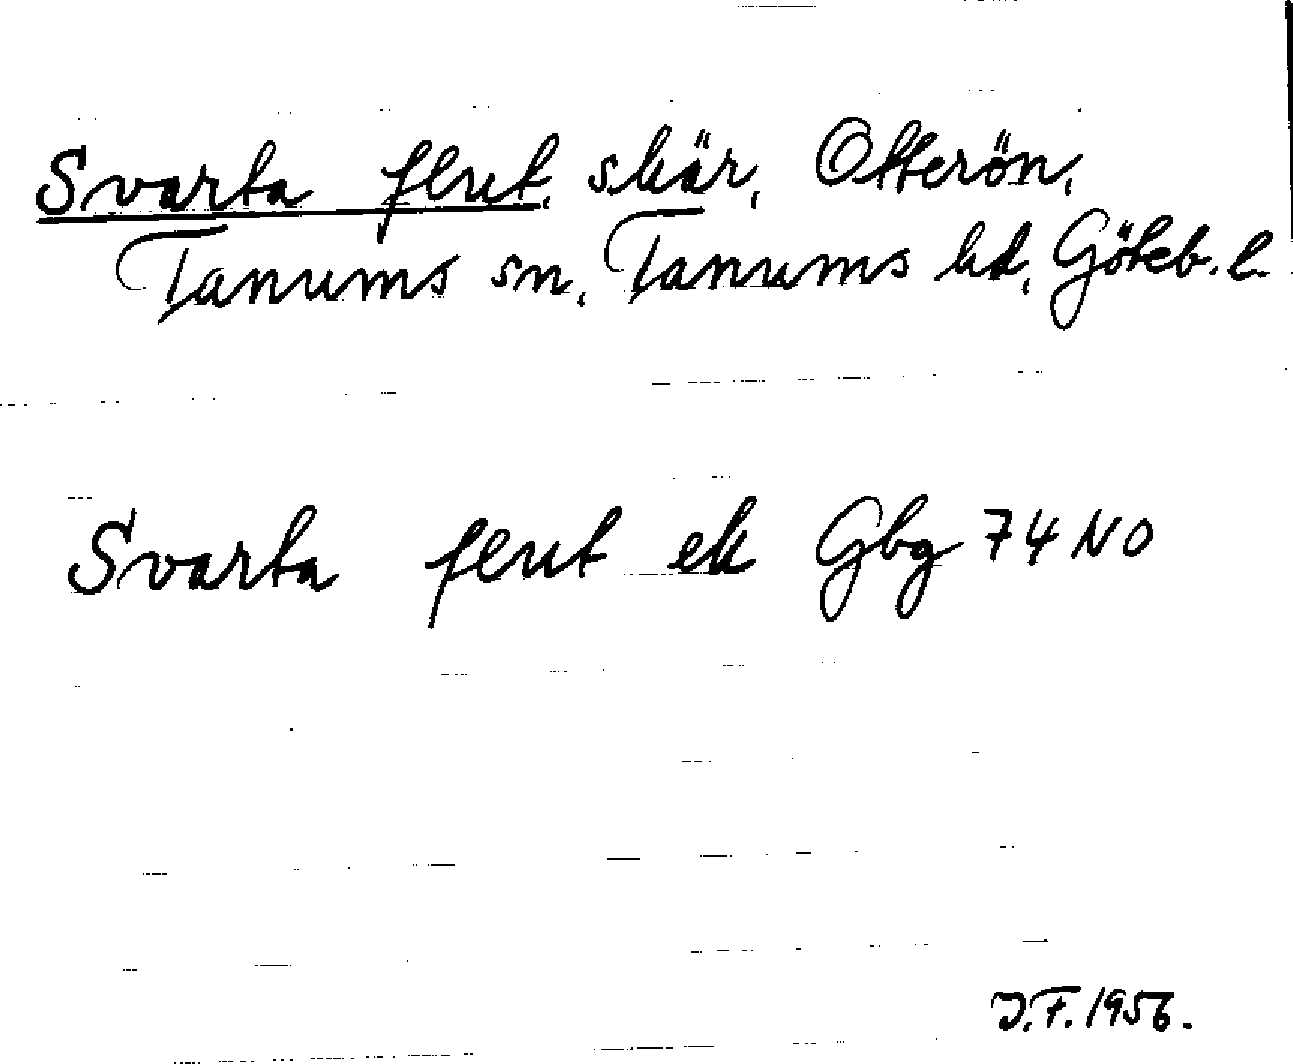 Svarta flut, skär, Otterön,
Tanums sn, Tanums hd, Göteb. l.
Svarta flut ek Gbg 74 NO
J.F. 1956.